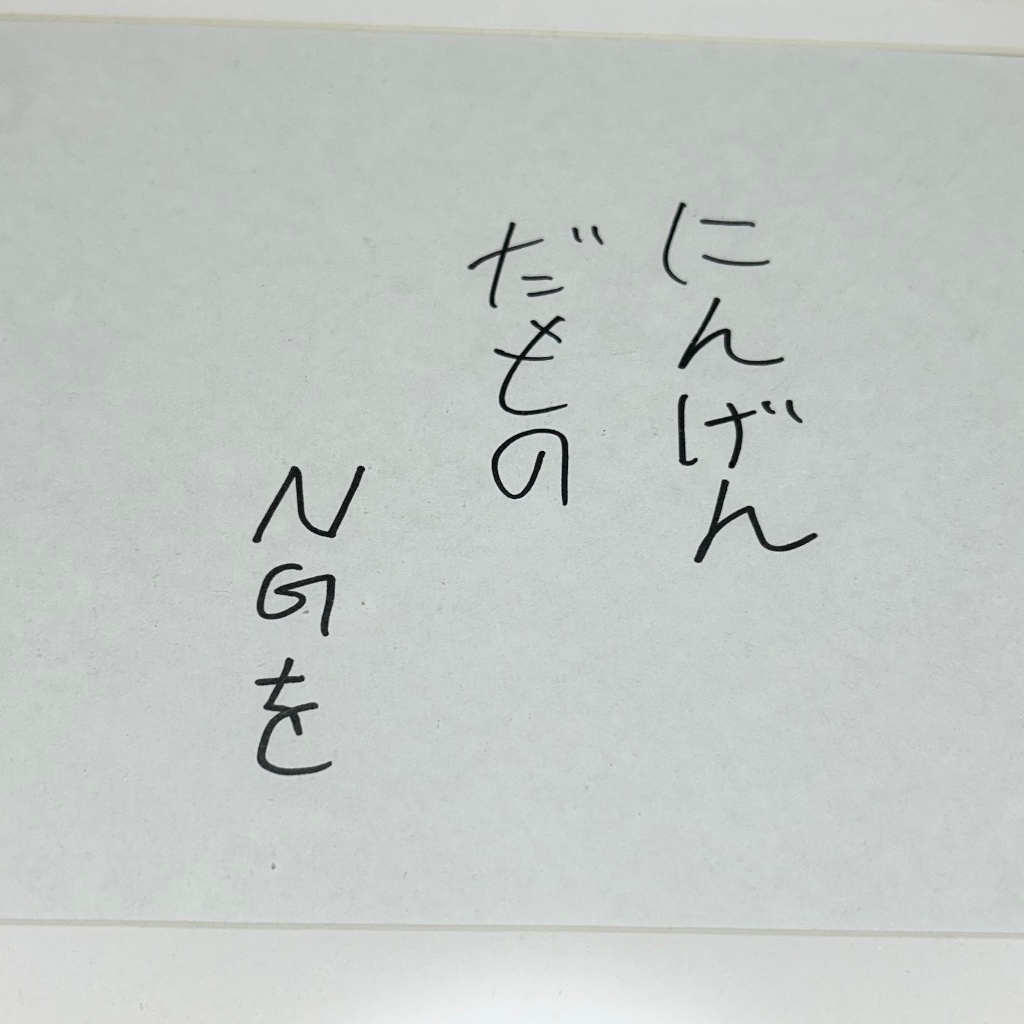 にんげん
だもの
NGを